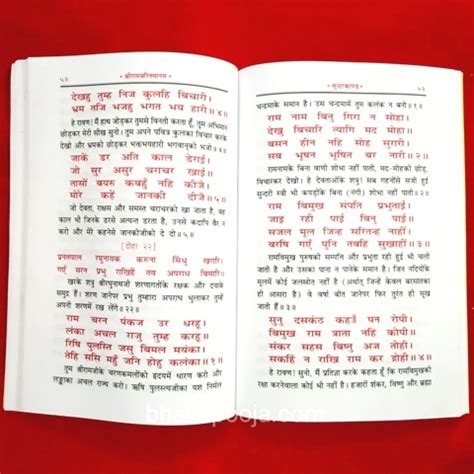 ५२ * श्रीरामचरितमानस *
देखहु तुम्ह निज कुलहि बिचारी।
भ्रम तजि भजहु भगत भय हारी॥४॥
हे रावण! मैं हाथ जोड़कर तुमसे विनती करता हूँ, तुम अभिमान
छोड़कर मेरी सीख सुनो। तुम अपने पवित्र कुलका विचार करके
देखो और भ्रमको छोड़कर भक्तभयहारी भगवान्‌को भजो॥४॥
जाकें डर अति काल डेराई।
जो सुर असुर चराचर खाई॥
तासों बयरु कबहुँ नहिं कीजै।
मोरे कहें जानकी दीजै॥५॥
जो देवता, राक्षस और समस्त चराचरको खा जाता है, वह
काल भी जिनके डरसे अत्यन्त डरता है, उनसे कदापि वैर न
करो और मेरे कहनेसे जानकीजीको दे दो॥५॥
[दोहा २२]
प्रनतपाल रघुनायक करुना सिंधु खरारि।
गएँ सरन प्रभु राखिहैं तव अपराध बिसारि॥
खरके शत्रु श्रीरघुनाथजी शरणागतोंके रक्षक और दयाके
समुद्र हैं। शरण जानेपर प्रभु तुम्हारा अपराध भुलाकर तुम्हें
अपनी शरणमें रख लेंगे॥२२॥
राम चरन पंकज उर धरहू।
लंका अचल राजु तुम्ह करहू॥
रिषि पुलस्ति जसु बिमल मयंका।
तेहि ससि महुँ जनि होहु कलंका॥१॥
तुम श्रीरामजीके चरणकमलोंको हृदयमें धारण करो और
लङ्काका अचल राज्य करो। ऋषि पुलस्त्यजीका यश निर्मल
* सुन्दरकाण्ड * ५३
चन्द्रमाके समान है। उस चन्द्रमामें तुम कलंक न बनो॥१॥
राम नाम बिनु गिरा न सोहा।
देखु बिचारि त्यागि मद मोहा॥
बसन हीन नहिं सोह सुरारी।
सब भूषन भूषित बर नारी॥२॥
रामनामके बिना वाणी शोभा नहीं पाती, मद-मोहको छोड़,
विचारकर देखो। हे देवताओंके शत्रु! सब गहनोंसे सजी हुई
सुन्दरी स्त्री भी कपड़ोंके बिना (नंगी) शोभा नहीं पाती॥२॥
राम बिमुख संपति प्रभुताई।
जाइ रही पाई बिनु पाई॥
सजल मूल जिन्ह सरितन्ह नाहीं।
बरषि गएँ पुनि तबहिं सुखाहीं॥३॥
रामविमुख पुरुषकी सम्पत्ति और प्रभुता रही हुई भी चली
जाती है और उसका पाना न पानेके समान है। जिन नदियोंके
मूलमें कोई जलस्रोत नहीं है (अर्थात् जिन्हें केवल बरसातका
ही आसरा है) वे वर्षा बीत जानेपर फिर तुरंत ही सूख
जाती हैं॥३॥
सुनु दसकंठ कहउँ पन रोपी।
बिमुख राम त्राता नहिं कोपी॥
संकर सहस बिष्नु अज तोही।
सकहिं न राखि राम कर द्रोही॥४॥
हे रावण! सुनो, मैं प्रतिज्ञा करके कहता हूँ कि रामविमुखकी
रक्षा करनेवाला कोई भी नहीं है। हजारों शंकर, विष्णु और ब्रह्मा